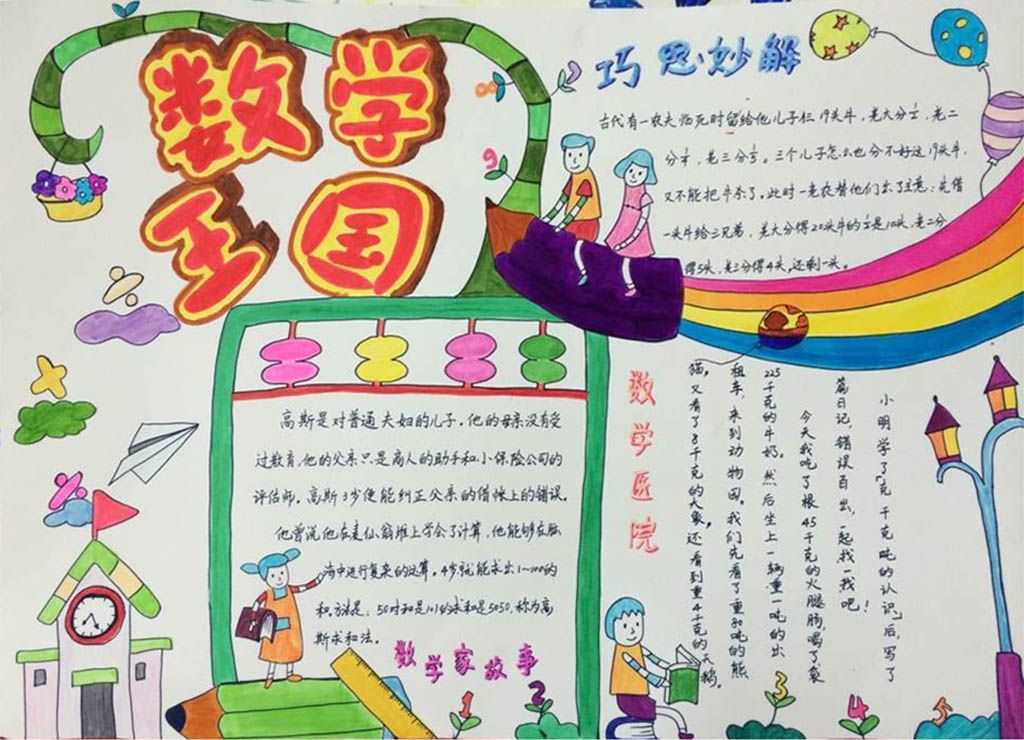 数学
王国
巧思妙解
古代有一农夫临死时留给他儿子仨19头牛,老大分½,老二
分¼,老三分⅕。三个儿子怎么也分不好这19头牛,
又不能把牛杀了。此时一老农替他们出了主意:先借
一头牛给三兄弟,老大分得20头牛的½是10头,老二分
得5头,老三分得4头,还剩一头。
高斯是对普通夫妇的儿子。他的母亲没有受
过教育,他的父亲只是商人的助手和小保险公司的
评估师。高斯3岁便能纠正父亲的借帐上的错误。
他曾说他在麦仙翁堆上学会了计算,他能够在脑
海中进行复杂的运算。4岁就能求出1~100的
和。方法是:50对和是101的求和是5050,称为高
斯求和法。
数学家故事
数学医院
小明学了“克 千克 吨的认识”后,写了
篇日记,错误百出,一起找一找吧!
今天我吃了根45千克的火腿肠,喝了袋
225千克的牛奶。然后坐上一辆重一吨的出
租车,来到动物园。我们先看了重90吨的熊
猫,又看了8千克的大象,还看到重4千克的天鹅。
8
9
1
2
3
4
5